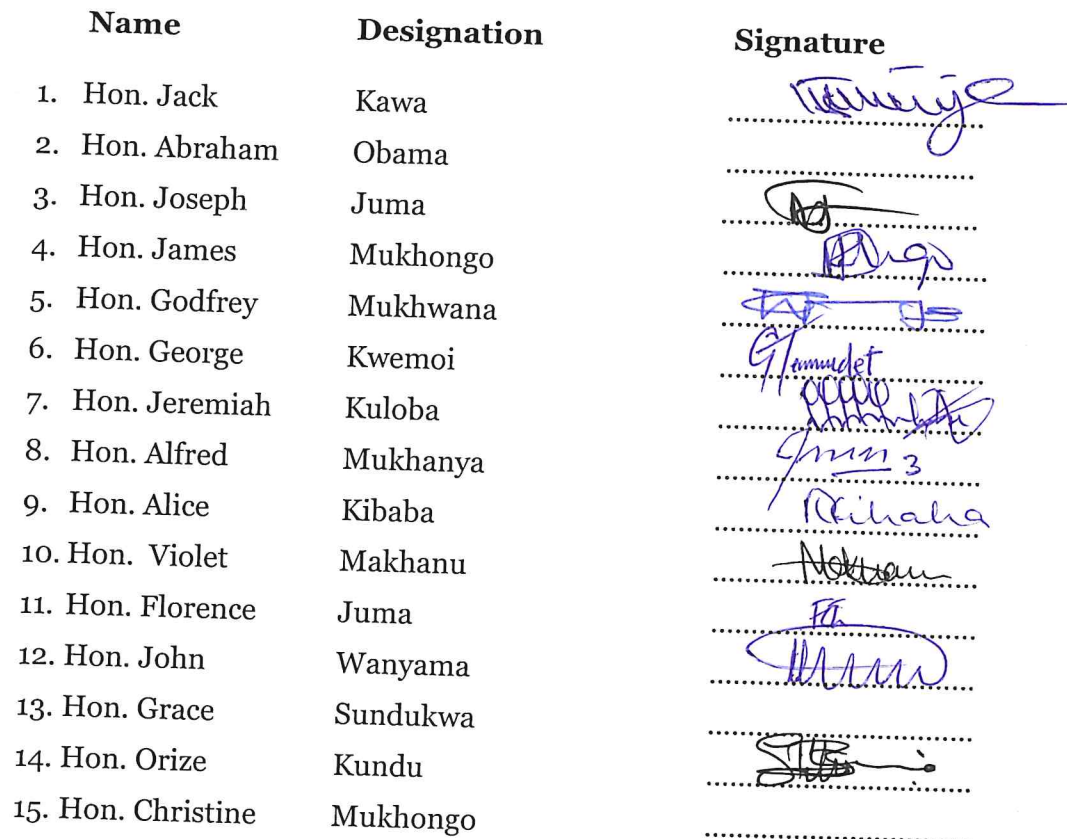 Name Designation Signature
1. Hon. Jack Kawa
2. Hon. Abraham Obama
3. Hon. Joseph Juma
4. Hon. James Mukhongo
5. Hon. Godfrey Mukhwana
6. Hon. George Kwemoi
7. Hon. Jeremiah Kuloba
8. Hon. Alfred Mukhanya
9. Hon. Alice Kibaba
10. Hon. Violet Makhanu
11. Hon. Florence Juma
12. Hon. John Wanyama
13. Hon. Grace Sundukwa
14. Hon. Orize Kundu
15. Hon. Christine Mukhongo